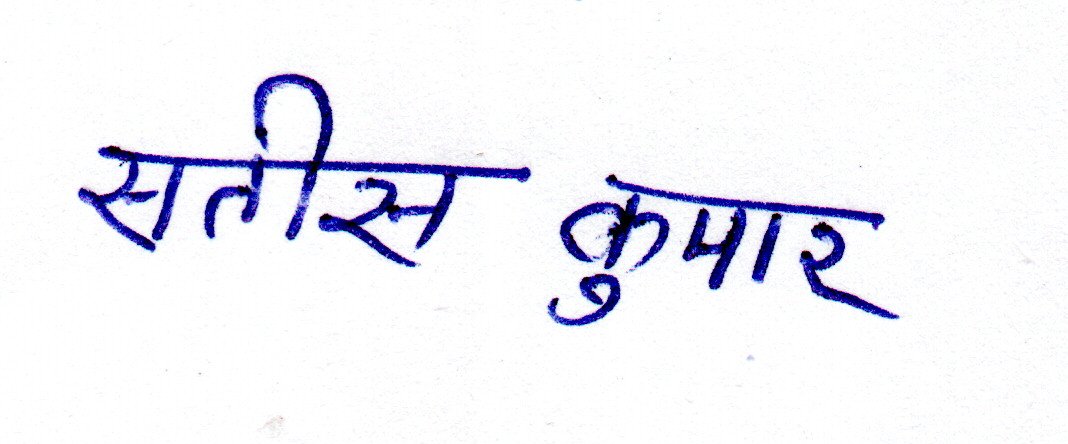 सतीस कुमार